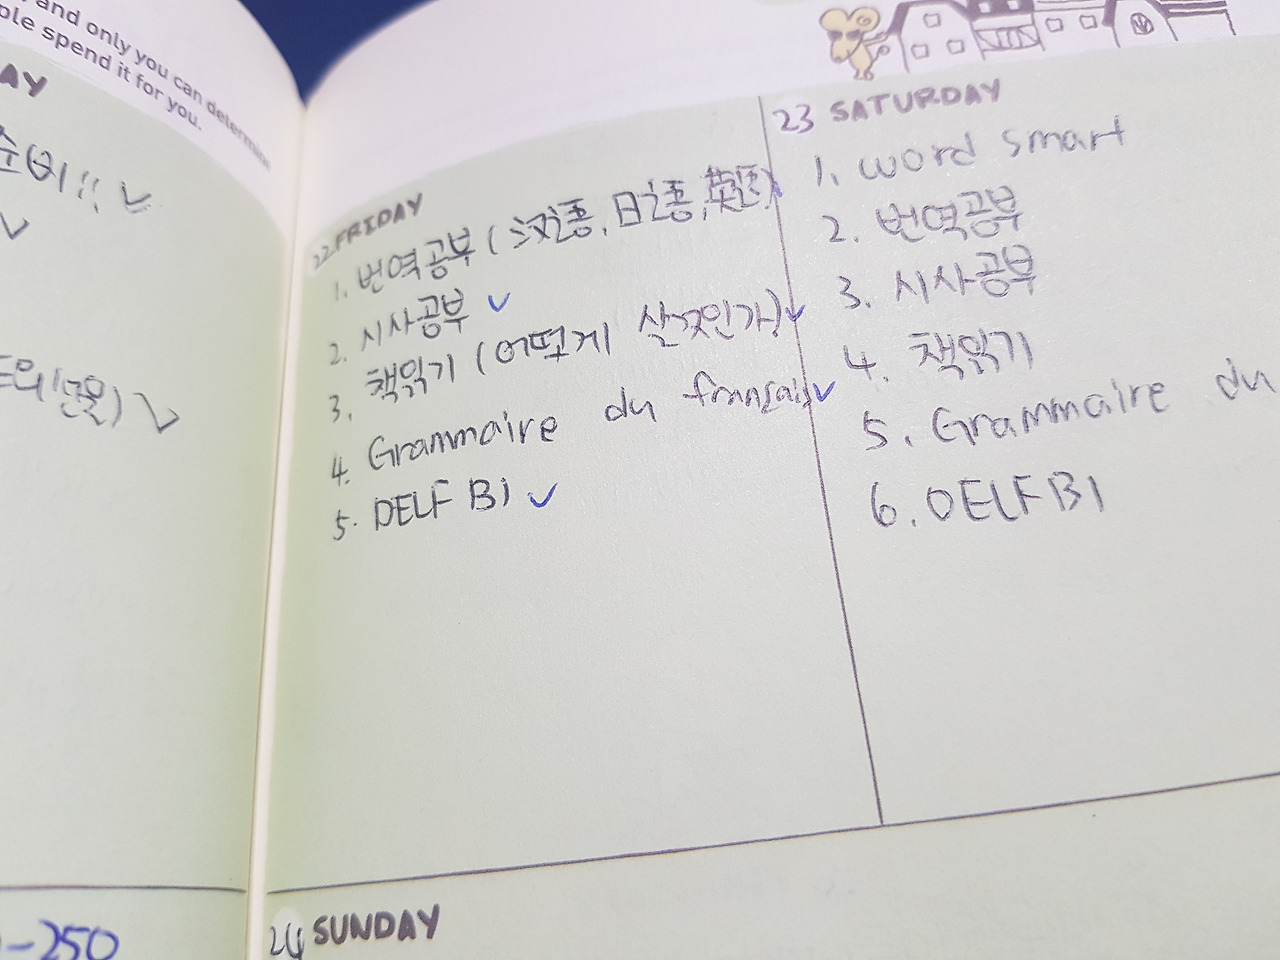 and only you can determine
ple spend it for you.
AY
준비!! ✓
✓
✓
-250
22 FRIDAY
1. 번역공부 (汉语, 日语, 英语) ✓
2. 시사공부 ✓
3. 책읽기 (어떻게 살것인가) ✓
4. Grammaire du français ✓
5. DELF B1 ✓
23 SATURDAY
1. word smart
2. 번역공부
3. 시사공부
4. 책읽기
5. Grammaire du
6. DELF B1
24 SUNDAY